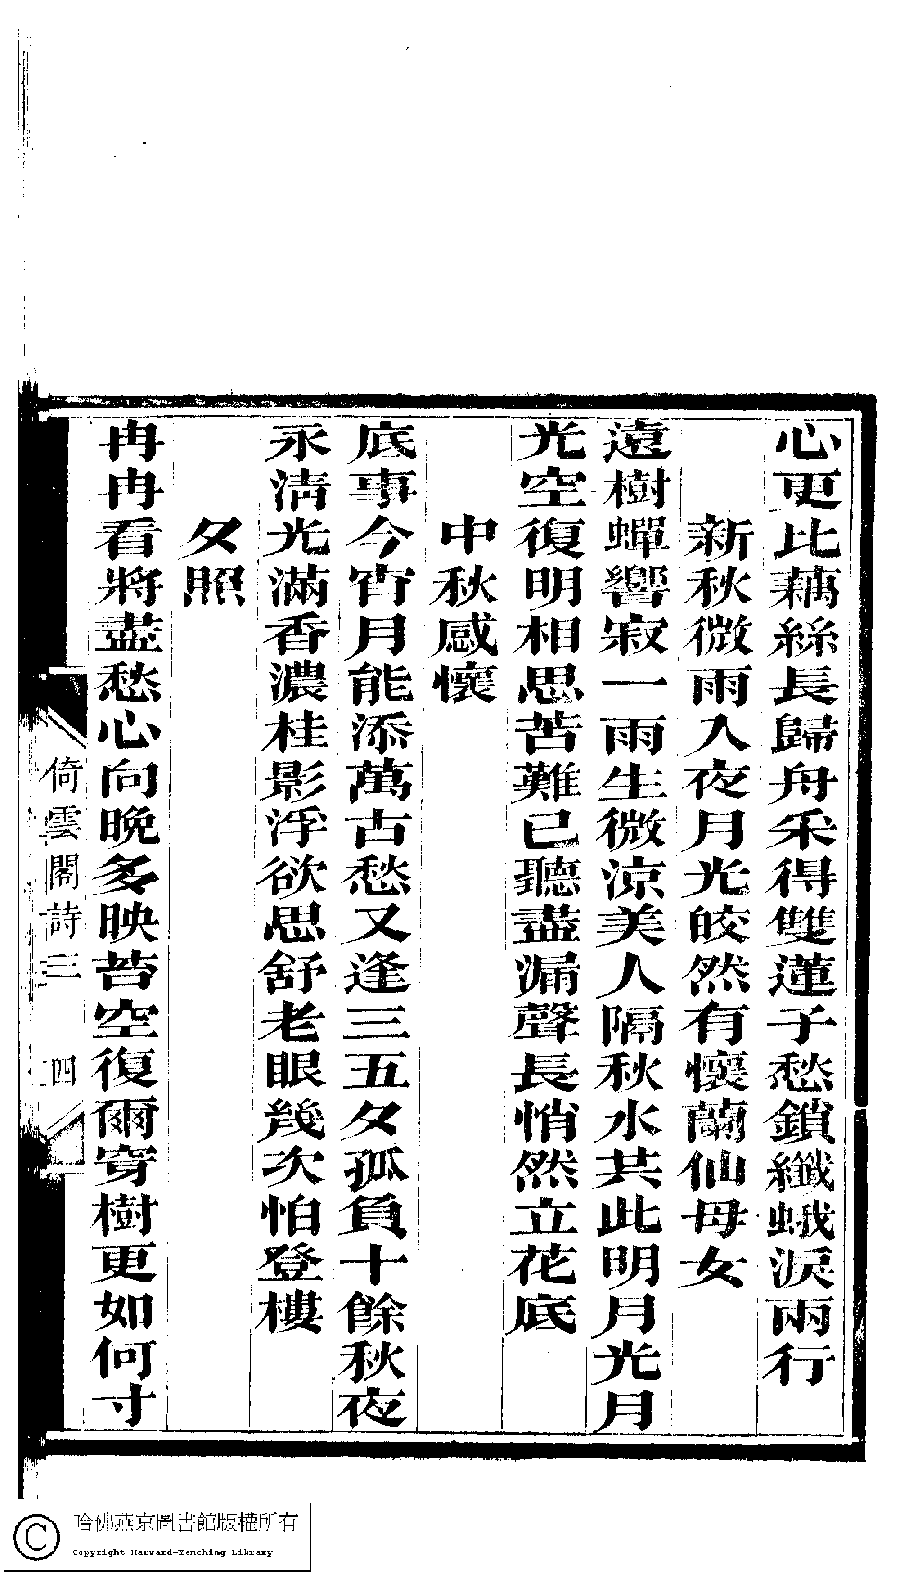 心更比藕絲長歸舟采得雙蓮子愁鎖纖蛾淚兩行
新秋微雨入夜月光皎然有懷蘭仙母女
遠樹蟬響寂一雨生微涼美人隔秋水共此明月光月
光空復明相思苦難已聽盡漏聲長悄然立花底
中秋感懷
底事今宵月能添萬古愁又逢三五夕孤負十餘秋夜
永清光滿香濃桂影浮欲思舒老眼幾次怕登樓
夕照
冉冉看將盡愁心向晚多映苔空復爾穿樹更如何寸
倚雲閣詩三 四
哈佛燕京圖書館版權所有
Copyright Harvard-Yenching Library